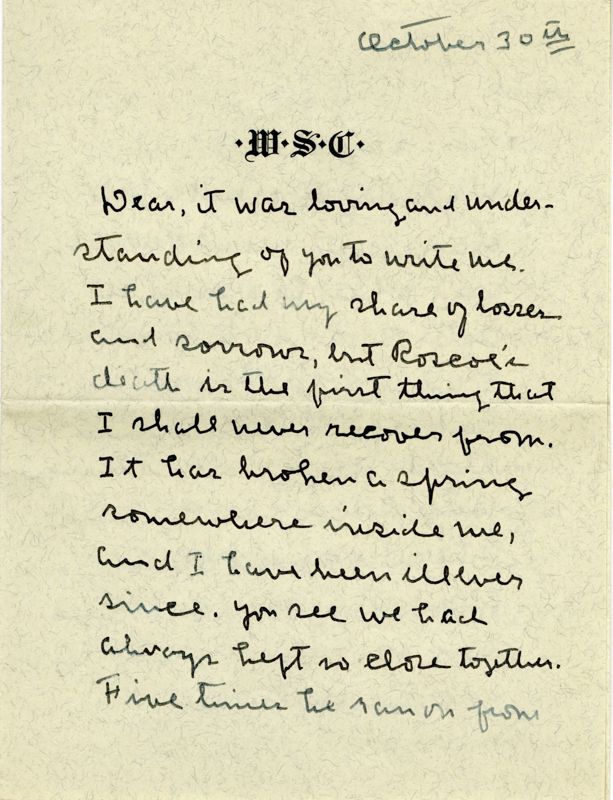 October 30th
·W·S·C·
Dear, it was loving and under-
standing of you to write me.
I have had my share of losses
and sorrows, but Roscoe's
death is the first thing that
I shall never recover from.
It has broken a spring
somewhere inside me,
and I have been ill ever
since. You see we had
always kept so close together.
Five times he ran on from